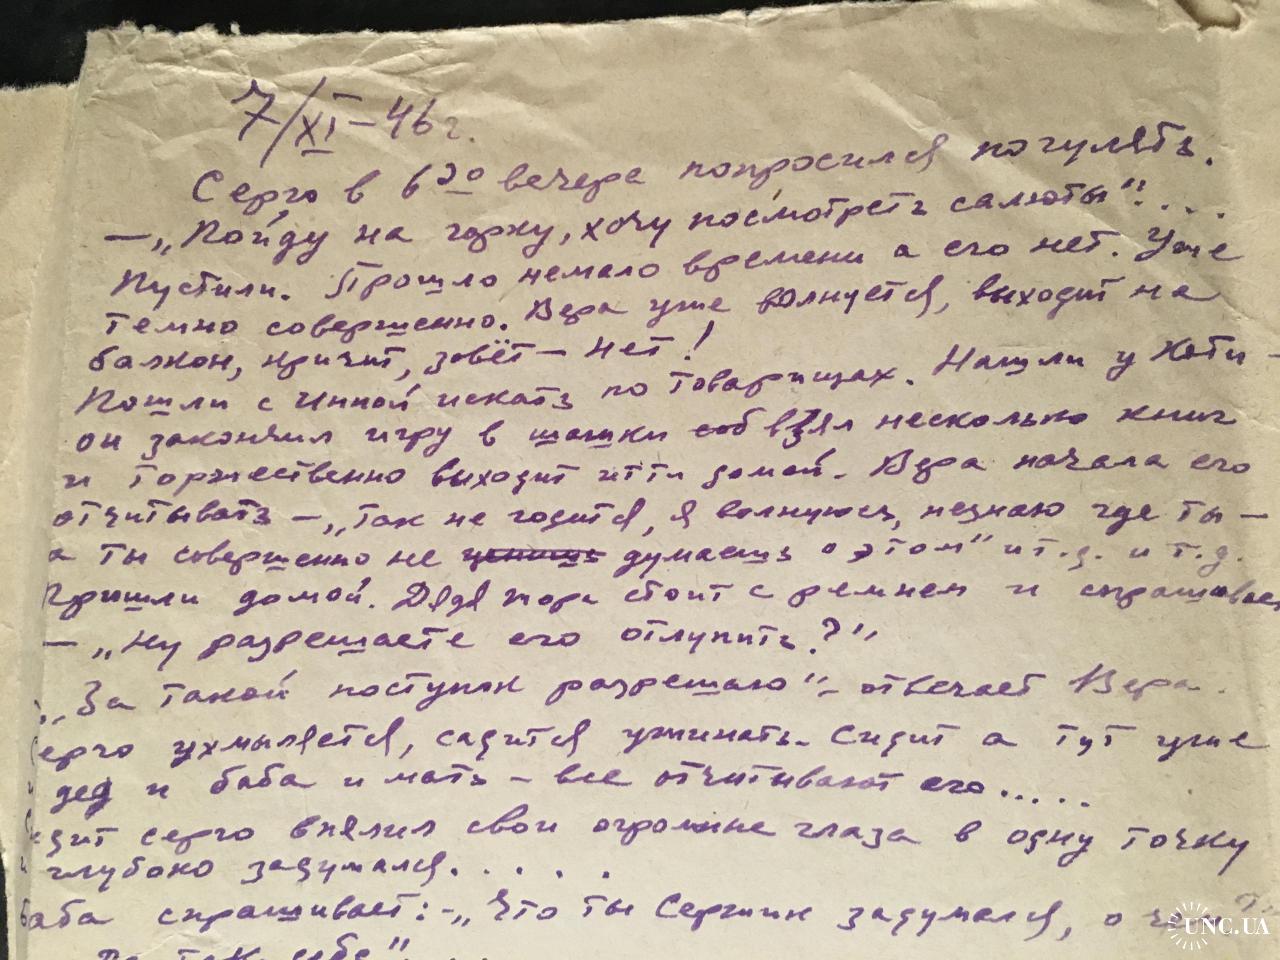 7/XI–46 г.
Серго в 6 30 вечера попросился погулять.
— „Пойду на горку, хочу посмотреть салюты"....
Пустили. Прошло немало времени а его нет. Уже
темно совершенно. Вера уже волнуется, выходит на
балкон, кричит, зовёт — нет!
Пошли с Инной искать по товарищах. Нашли у Коти –
он закончил игру в шашки взял несколько книг
и торжественно выходит итти домой. Вера начала его
отчитывать – „так не годится, я волнуюсь, незнаю где ты –
а ты совершенно не думаешь о этом" и т.д. и т.д.
Пришли домой. Дядя Жора стоит с ремнем и спрашивает
— „Ну разрешаете его отлупить?"
„За такой поступок разрешаю" – отвечает Вера.
Серго ухмыляется, садится ужинать. Сидит а тут уже
дед и баба и мать – все отчитывают его.....
Сидит Серго впялил свои огромные глаза в одну точку
и глубоко задумался......
Баба спрашивает: – „Что ты Сержик задумался, о чем?"